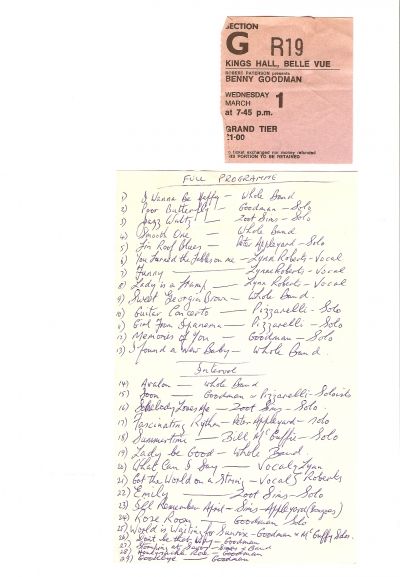 SECTION
G R19
KINGS HALL, BELLE VUE
ROBERT PATERSON presents
BENNY GOODMAN
WEDNESDAY
MARCH 1
at 7-45 p.m.
GRAND TIER
£1·00
No ticket exchanged nor money refunded
THIS PORTION TO BE RETAINED
FULL PROGRAMME
1) I Wanna Be Happy - Whole Band
2) Poor Butterfly - Goodman - Solo
3) Jazz Waltz - Zoot Sims - Solo
4) Smooth One - Whole Band
5) Tin Roof Blues - Peter Appleyard - Solo
6) You Turned the Tables on me - Lynn Roberts - Vocal
7) Funny - Lynn Roberts - Vocal
8) Lady is a Tramp - Lynn Roberts - Vocal
9) Sweet Georgia Brown - Whole Band.
10) Guitar Concerto - Pizzarelli - Solo
11) Girl From Ipanema - Pizzarelli - Solo
12) Memories of You - Goodman - Solo
13) I found a new Baby - Whole Band.
Interval
14) Avalon - Whole Band
15) Soon - Goodman & Pizzarelli - Soloists
16) Somebody Loves Me - Zoot Sims - Solo.
17) Fascinating Rythm - Peter Appleyard - solo
18) Summertime - Bill McGuffie - Solo
19) Lady be Good - Whole Band
20) What Can I Say - Vocal Lynn
21) Got the World on a String - Vocal Roberts
22) Emily - Zoot Sims - Solo
23) I'll Remember April - Sims - Appleyard
24) Rose Room - Goodman Solo
25) World is Waiting for Sunrise - Goodman & McGuffy Solos.
26) Don't be that Way - Goodman
27) Stomping at Savoy - & Band
28) - Goodman
29) Goodbye - Goodman